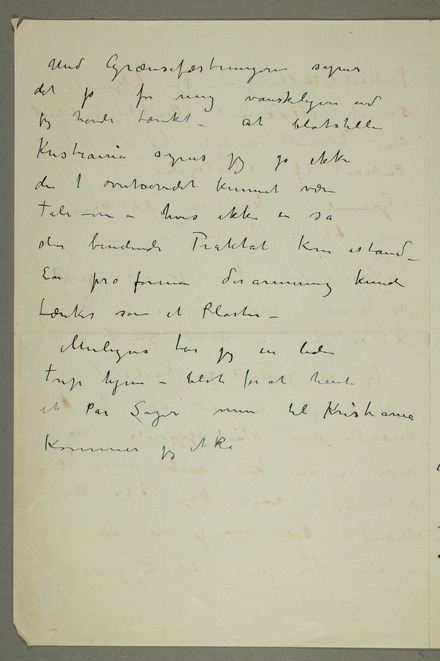 Med Grænsefæstningerne synes
det jo for mig vanskeligere end
jeg havde tænkt – at blotstille
Kristiania synes jeg jo ikke
der i overhovedet kunnet være
Tale om – hvis ikke en sa
den bindende Traktat kom istand –
En pro forma desarmering kunde
tænkes som et Plaster –
Muligens tar jeg en liden
trip hjem – blot for at hente
et Par Sager men til Kristiania
kommer jeg ikke